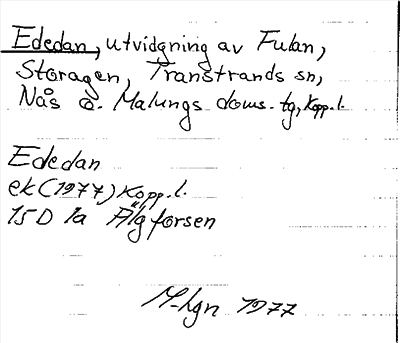 Ededan, utvidgning av Fulan,
Storagen, Transtrands sn,
Nås o. Malungs doms. tg, Kopp. l.
Ededan
ek (1977) Kopp. l.
15 D 1a Älgforsen
M-hgn 1977